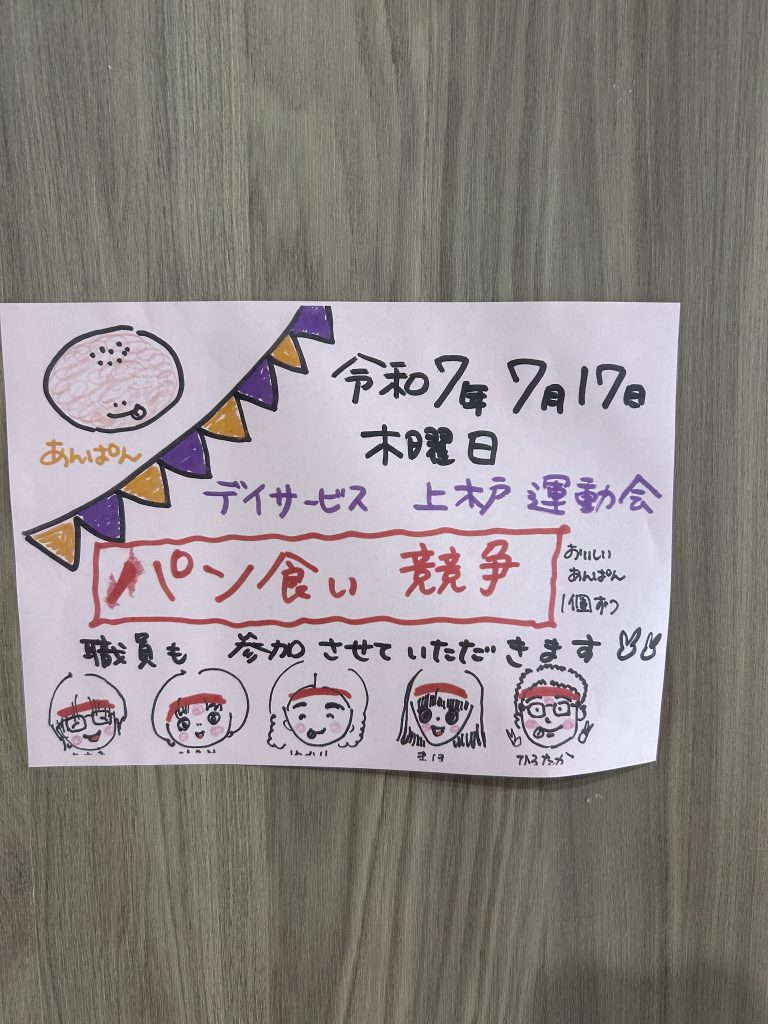 令和7年 7月17日
木曜日
あんぱん
デイサービス 上木戸 運動会
パン食い 競争
おいしい
あんぱん
1個**
職員も 参加させていただきます